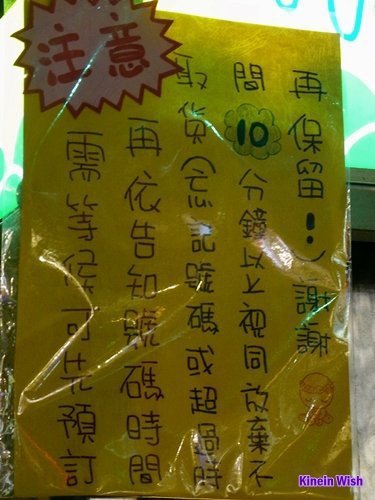 注意
需等候可先預訂
再依告知號碼時間
取貨(忘記號碼或超過時
間10分鐘以上視同放棄不
再保留!)謝謝
Kinein Wish